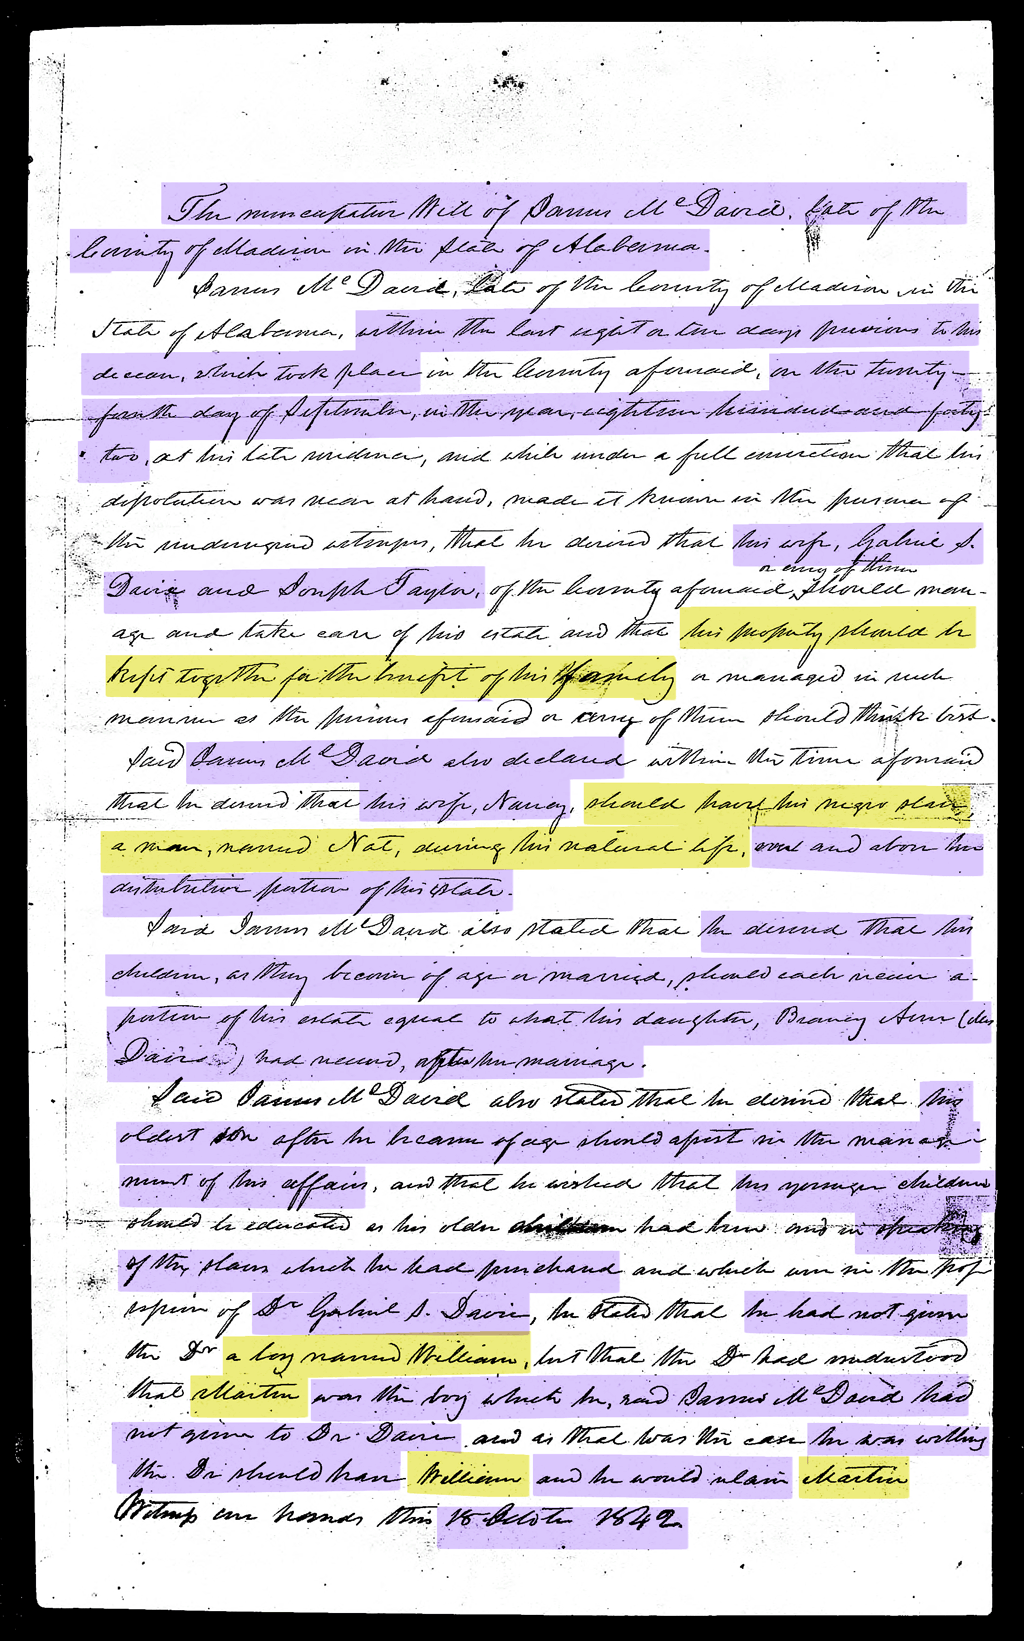 The nuncupative Will of James McDavid, late of the
County of Madison in the State of Alabama.
James McDavid, late of the County of Madison in the
State of Alabama, within the last eight or ten days previous to his
decease, which took place in the County aforesaid, on the twenty-
fourth day of September, in the year, eighteen hundred and forty-
two, at his late residence, and while under a full conviction that his
dissolution was near at hand, made it known in the presence of
the undersigned witnesses, that he desired that his wife, Gabriel S.
or any of them
Davie and Joseph Taylor, of the County aforesaid, should man-
age and take care of his estate and that his property should be
kept together for the benefit of his family or managed in such
manner as the persons aforesaid or any of them should think best.
Said James McDavid also declared within the time aforesaid
that he desired that his wife, Nancy, should have, his negro slave,
a man, named Nat, during his natural life, over and above her
distributive portion of his estate.
Said James McDavid also stated that he desired that his
children, as they become of age or married, should each receive a
portion of his estate equal to what his daughter, Ann (
Davie) had received, after her marriage.
Said James McDavid also stated that he desired that his
oldest son after he became of age should assist in the manage-
ment of his affairs, and that he wished that his younger children
should be educated as his older children had been and in speaking
of the slaves which he had purchased and which were in the pos-
session of Dr Gabriel S. Davie, he stated that he had not given
the Dr a boy named William, but that the Dr had understood
that Martin was the boy which he, said James McDavid had
not given to Dr. Davie and as that was the case he was willing
the Dr should have William and he would retain Martin
Witness our hands this 18 October 1842.